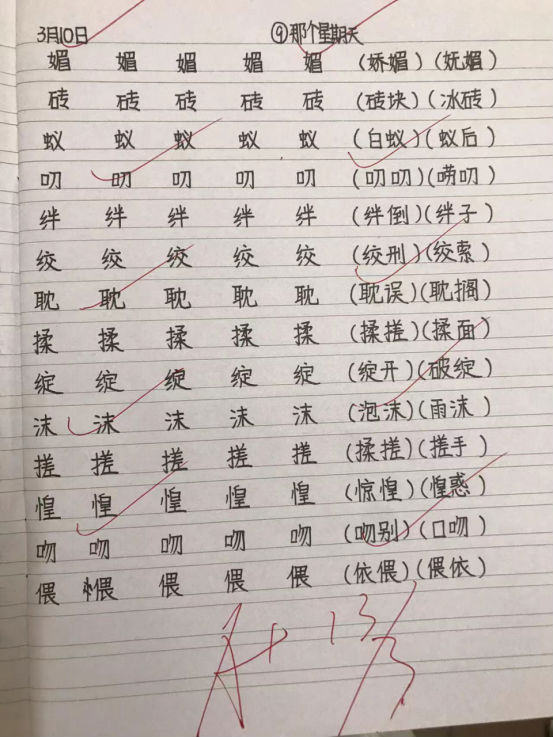 3月10日 ⑨那个星期天
媚 媚 媚 媚 媚 (娇媚)(妩媚)
砖 砖 砖 砖 砖 (砖块)(冰砖)
蚁 蚁 蚁 蚁 蚁 (白蚁)(蚁后)
叨 叨 叨 叨 叨 (叨叨)(唠叨)
绊 绊 绊 绊 绊 (绊倒)(绊子)
绞 绞 绞 绞 绞 (绞刑)(绞索)
耽 耽 耽 耽 耽 (耽误)(耽搁)
揉 揉 揉 揉 揉 (揉搓)(揉面)
绽 绽 绽 绽 绽 (绽开)(破绽)
沫 沫 沫 沫 沫 (泡沫)(雨沫)
搓 搓 搓 搓 搓 (揉搓)(搓手)
惶 惶 惶 惶 惶 (惊惶)(惶惑)
吻 吻 吻 吻 吻 (吻别)(口吻)
偎 偎 偎 偎 偎 (依偎)(偎依)